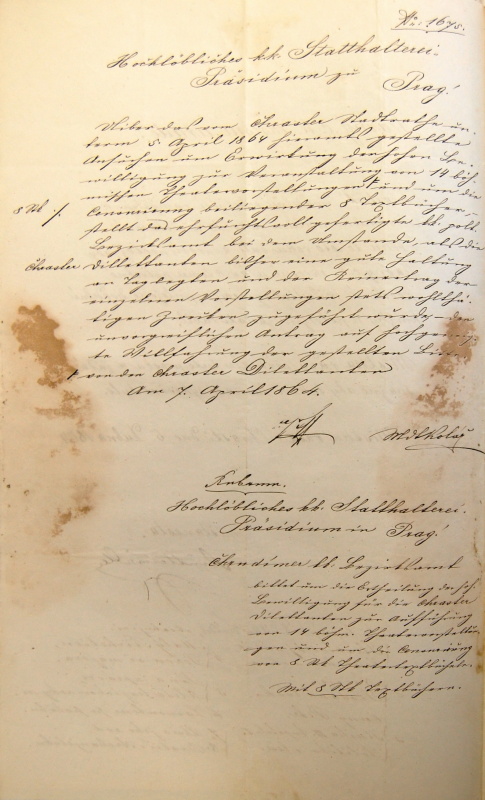 Nro: 1675.
Hochlöbliches k.k. Statthalterei-
Präsidium zu Prag!
Ueber das vom Chraster Stadtrathe un-
term 5. April 1864 hieramts gestellte
Ansuchen um Erwirkung der hohen Be-
willigung zur Veranstaltung von 14 böh-
mischen Theatervorstellungen und um die
8 Stk ./. Censurirung beiliegender 8 Textbücher,
stellt das ehrfurchtsvoll gefertigte kk. polit.
Bezirksamt bei dem Umstande, als die
Chraster Dillettanten bisher eine gute Haltung
an Tag legten und der Reinertrag der
einzelnen Vorstellungen stets wohlthä-
tigen Zwecken zugeführt wurde den
unvorgreiflichen Antrag auf hochgeneig-
te Willfahrung der gestellten
von den Chraster Dilettanten
Am 7. April 1864.
Rubrum.
Hochlöbliches kk. Statthalterei-
Präsidium in Prag!
Chrudimer kk. Bezirksamt
bittet um die Ertheilung der hoh.
Bewilligung für die Chraster
Dilettanten zur Aufführung
von 14 böhm. Theatervorstellun-
gen und um die Censurirung
von 8 Stk Theatertextbüchern.
Mit 8 Stk Textbüchern.